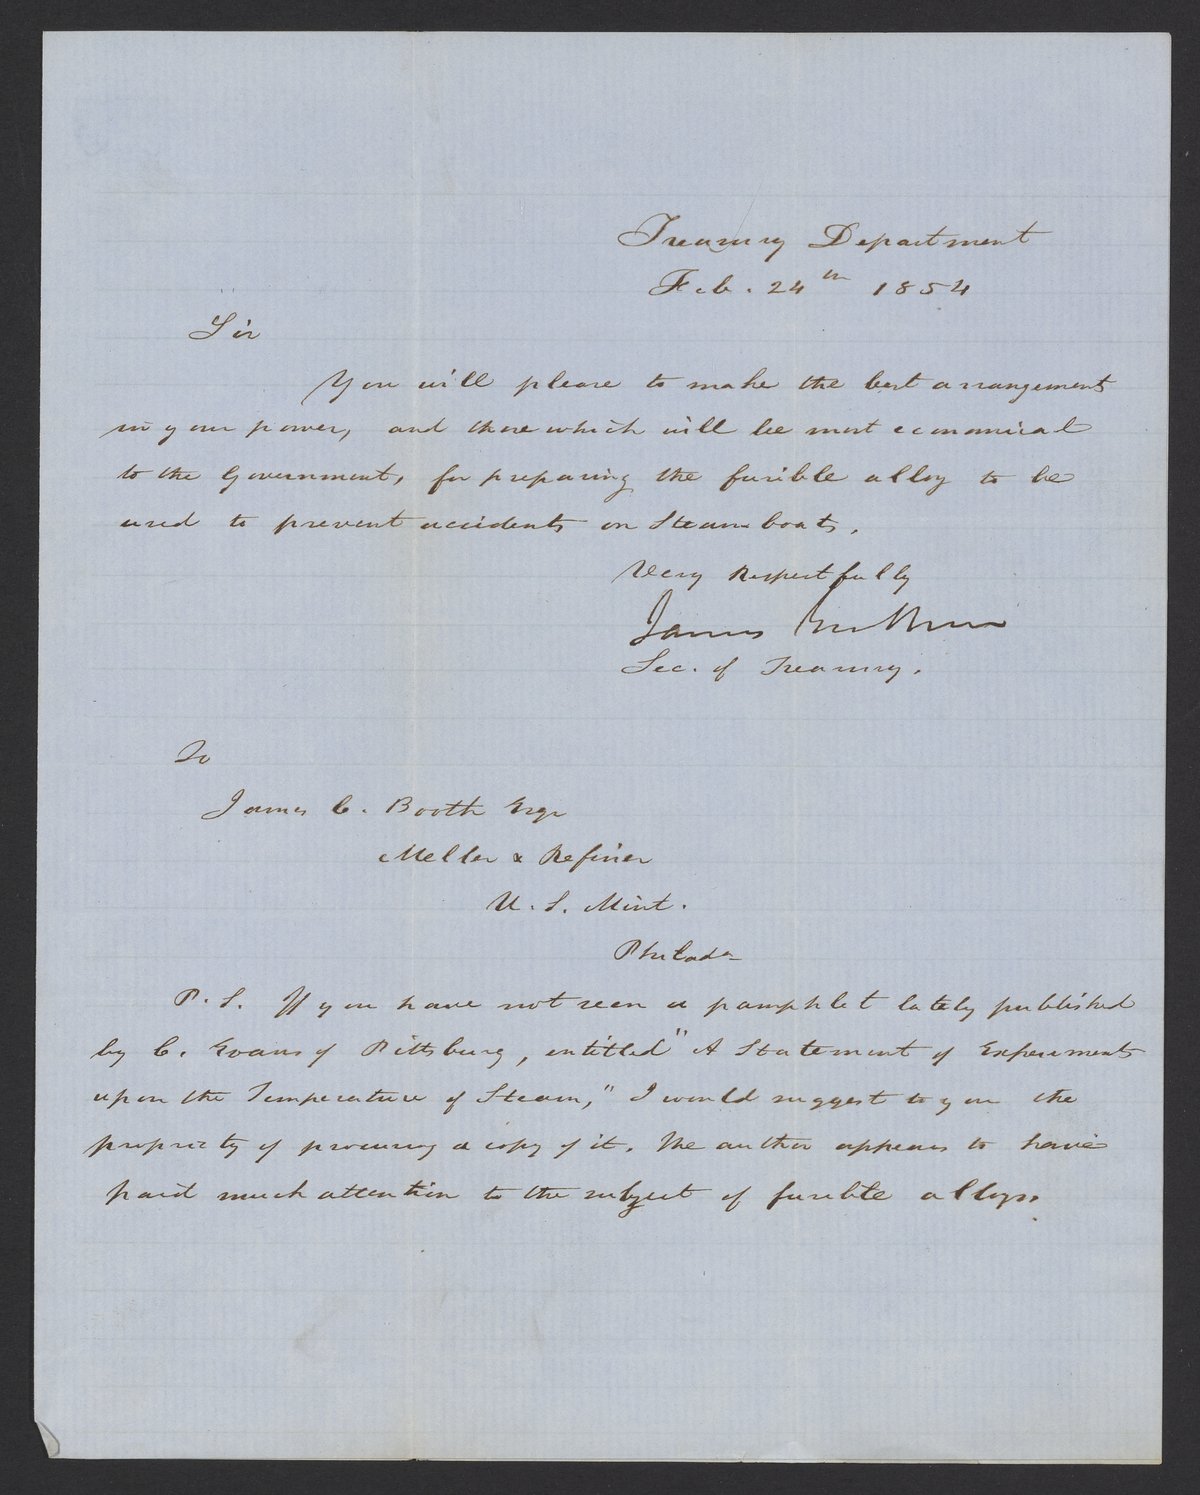 Treasury Department
Feb. 24th 1854
Sir
You will please to make the best arrangements
in your power, and those which will be most economical
to the Government, for preparing the fusible alloy to be
used to prevent accidents on Steam boats.
Very Respectfully
James Guthrie
Sec. of Treasury.
To
James C. Booth Esqr
Melter & Refiner
U. S. Mint.
Philada
P. S. If you have not seen a pamphlet lately published
by C. Evans of Pittsburg, entitled "A Statement of Experiments
upon the Temperature of Steam," I would suggest to you the
propriety of procuring a copy of it. The author appears to have
paid much attention to the subject of fusible alloys.